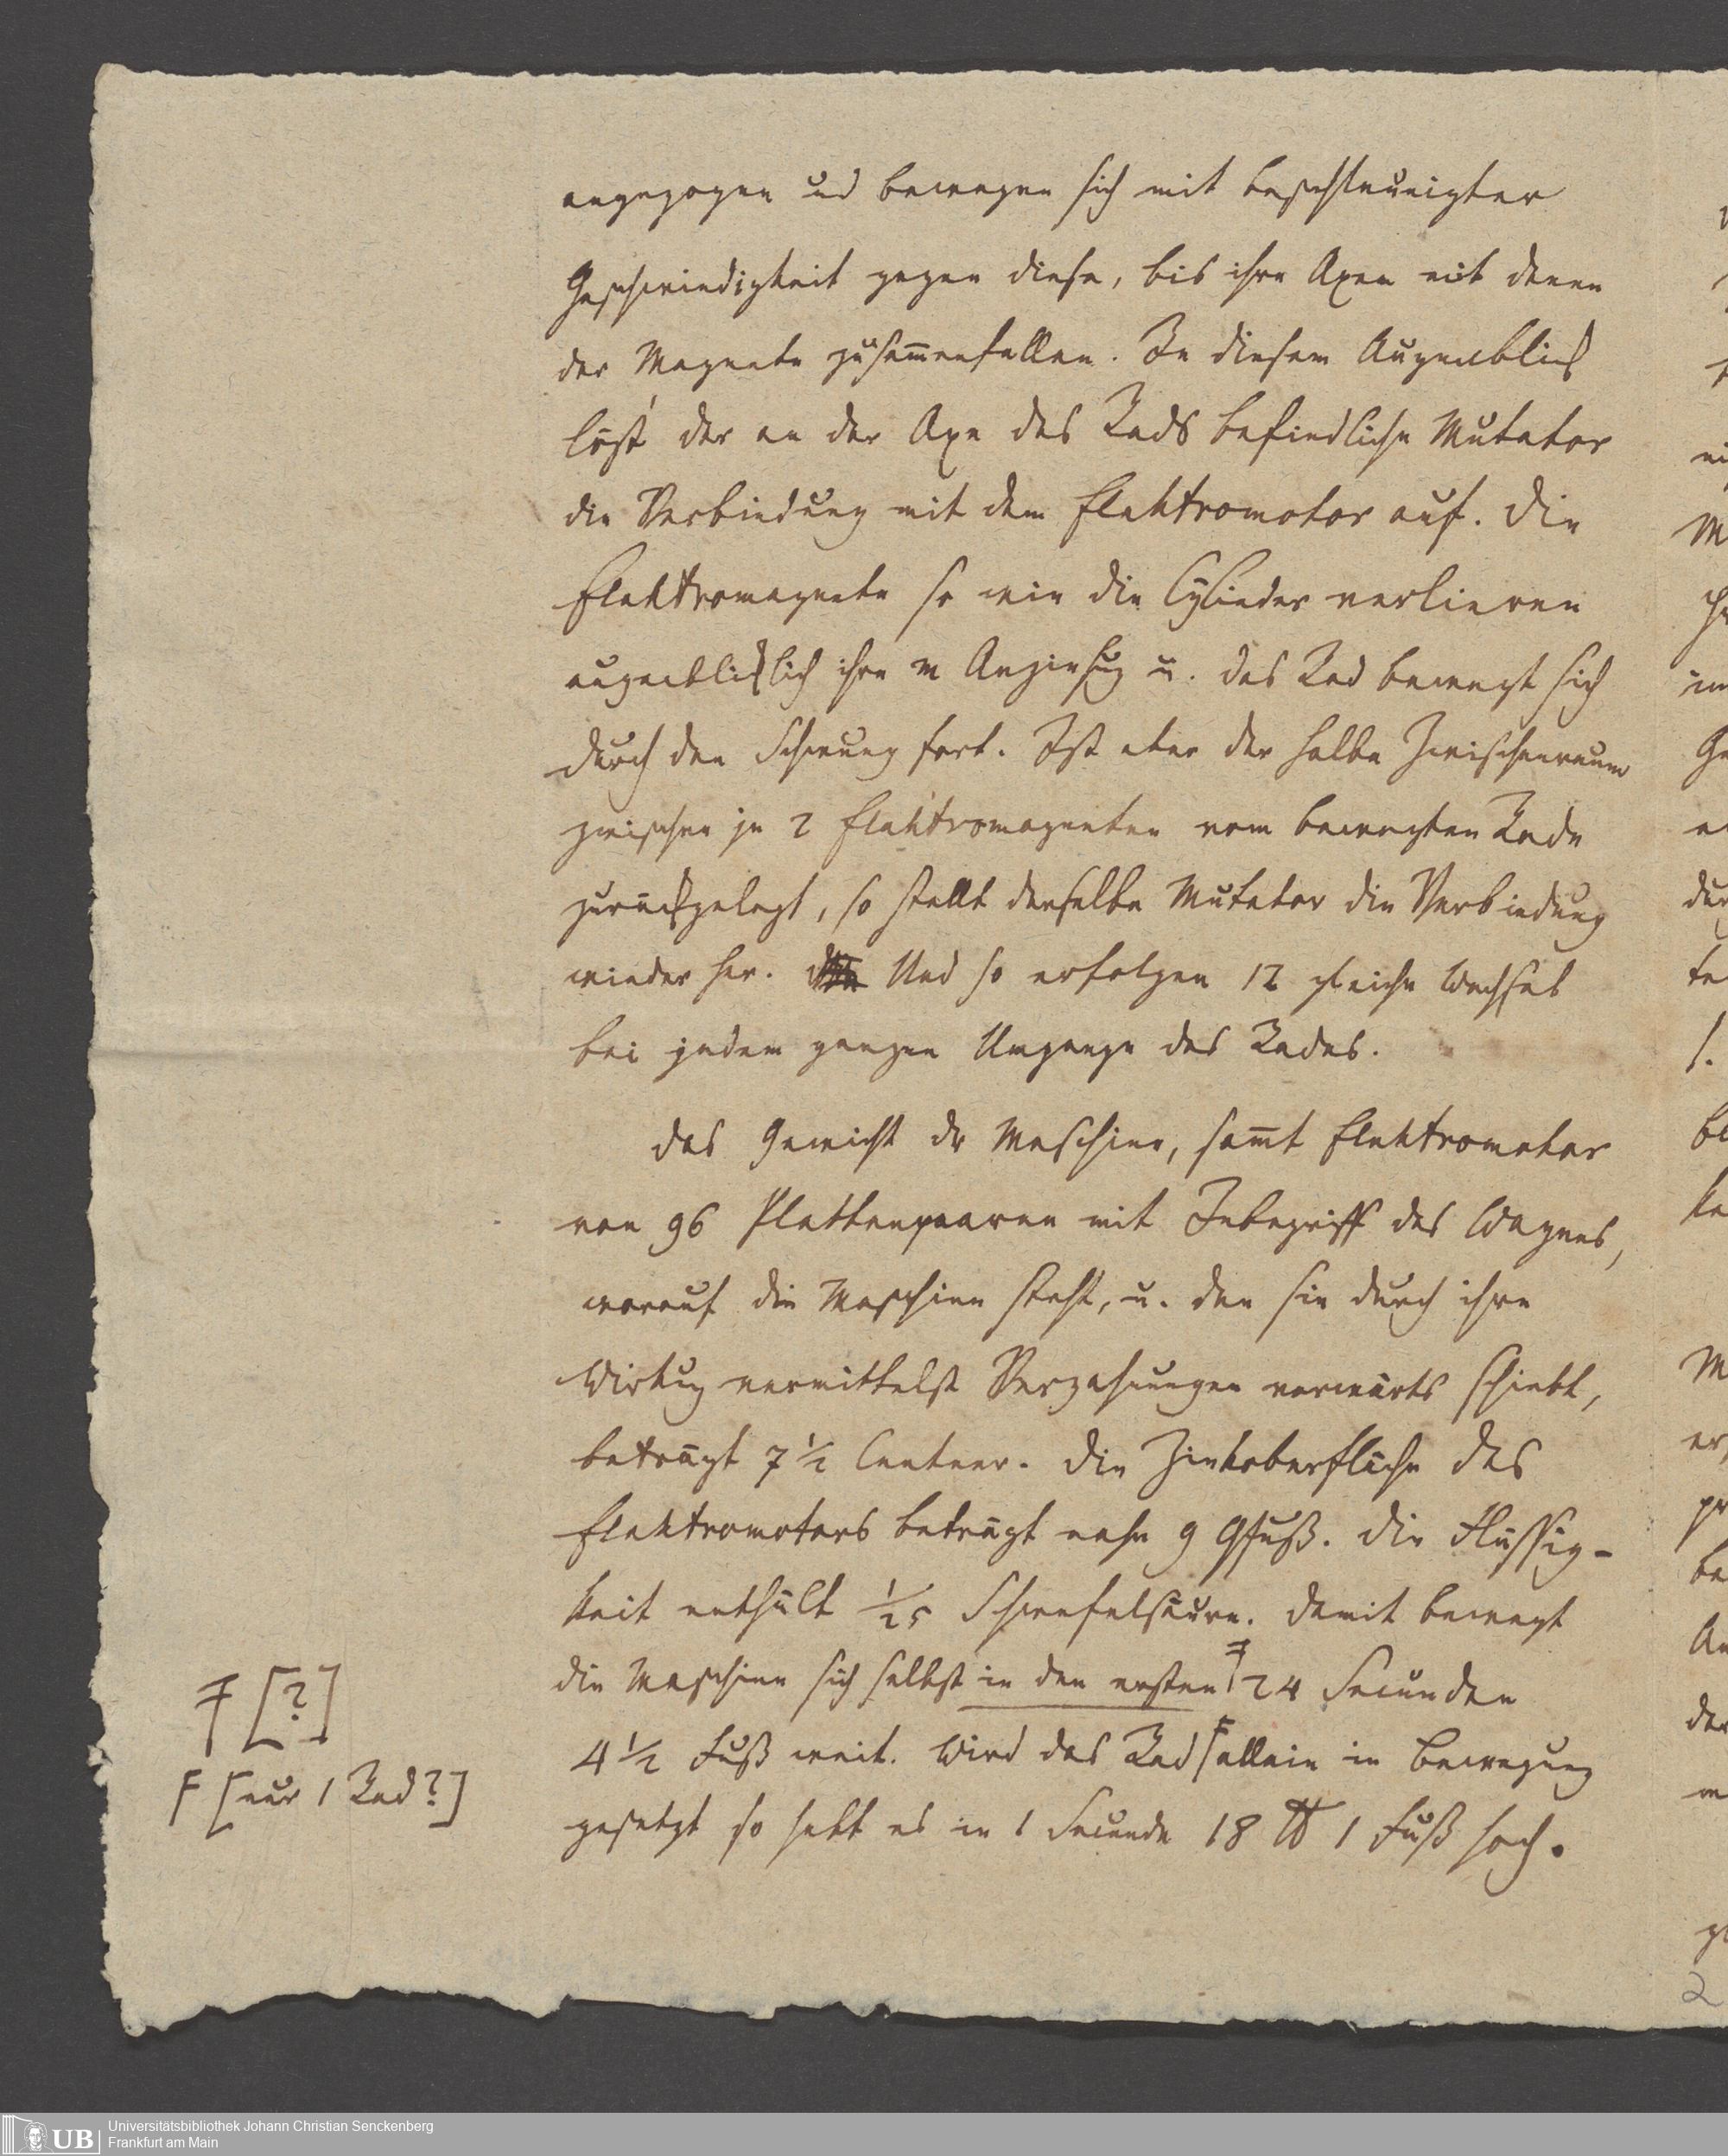 angezogen und bewegen sich mit beschleunigter
Geschwindigkeit gegen diese, bis ihre Axen mit denen
der Magnete zusam̅enfallen. In diesem Augenblick
löst der an der Axe des Rads befindliche Mutator
die Verbindung mit dem Elektromotor auf. Die
Elektromagnete so wie die Cylinder verlieren
augenblicklich ihre m Anziehug u. das Rad bewegt sich
durch den Schwung fort. Ist aber der halbe Zwischenraum
zwischen je 2 Elektromagneten vom bewegten Rade
zurückgelegt, so stellt derselbe Mutator die Verbindung
wieder her. Und so erfolgen 12 gleiche Wechsel
bei jedem ganzen Umgange des Rades.
Das Gewicht dr Maschine, sam̅t Elektromotor
von 96 Plattenpaaren mit Inbegriff des Wagens,
worauf die Maschine steht, u. den sie durch ihre
Wirkug vermittelst Verzahnungen vorwärts schiebt,
beträgt 7 1/2 Centner. Die Zinkoberfläche des
Elektromotors beträgt nahe 9 Qfuß. Die Flüssig-
keit enthält 1/25 Schwefelsäure. Damit bewegt
die Maschine sich selbst in den ersten Ŧ 24 Secunden
4 1/2 Fuß weit. Wird das Rad F allein in Bewegung
gesetzt so hebt es in 1 Secunde 18 ℔ 1 Fuß hoch.
Ŧ [?]
F [nur 1 Rad?]
2
UB
Universitätsbibliothek Johann Christian Senckenberg
Frankfurt am Main